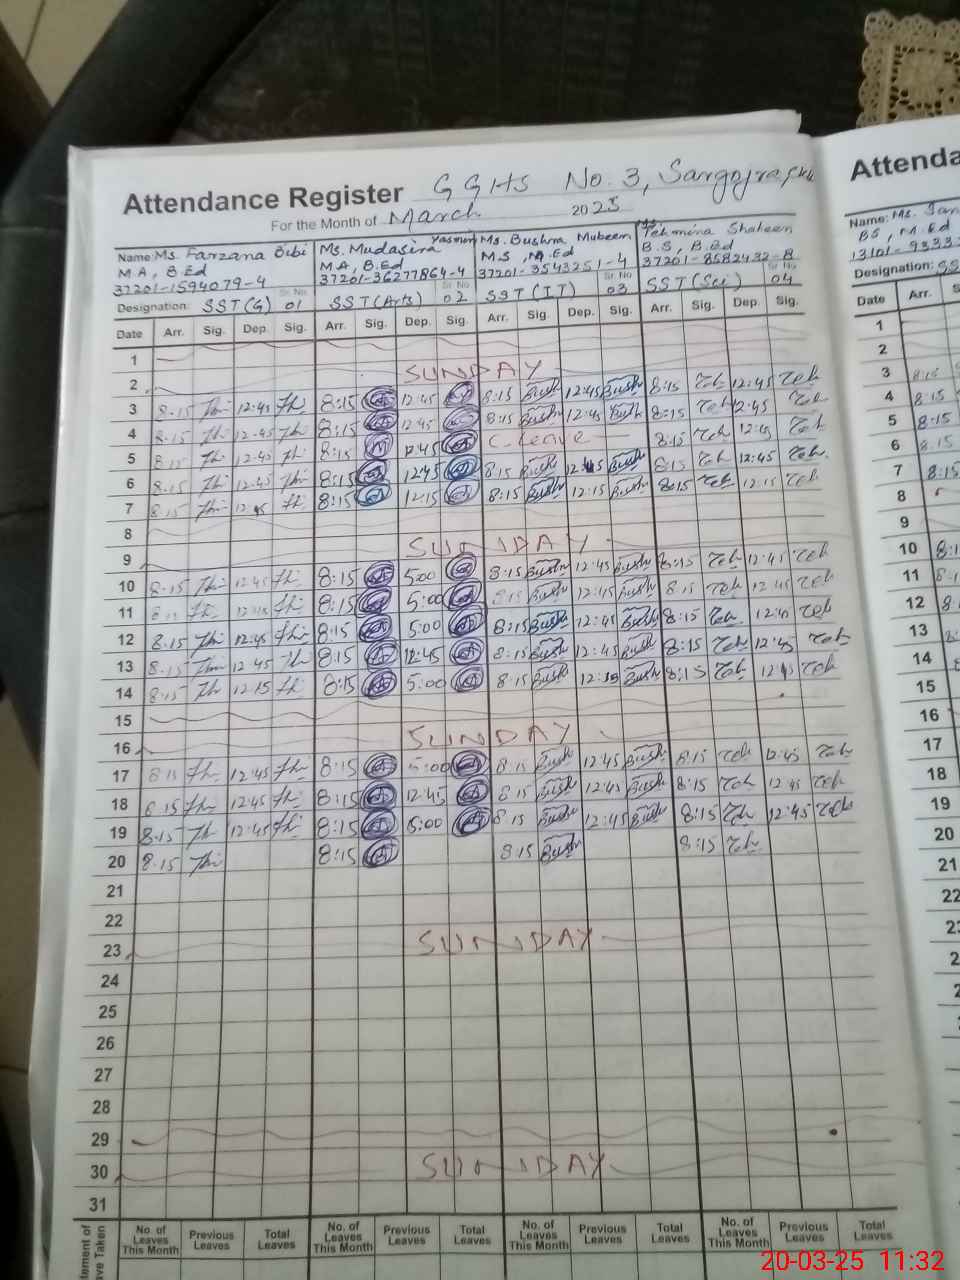 Attendance Register GGHS No. 3, Sargojra, Ckl
For the Month of March 2025
Name: Ms. Farzana Bibi Ms. Mudasira Yasmeen Ms. Bushra Mubeen Ms. Tehmina Shaheen
MA, B.Ed MA, B.Ed MS, M.Ed B.S, B.Ed
37201-1594079-4 37201-36277864-4 37201-3543251-4 37201-8582432-8
Designation: SST(G) Sr No 01 SST(Arts) Sr No 02 SST(IT) Sr No 03 SST(Sci) Sr No 04
Date Arr. Sig. Dep. Sig. Arr. Sig. Dep. Sig. Arr. Sig. Dep. Sig. Arr. Sig. Dep. Sig.
1
2 SUNDAY
3 8:15 12:45 8:15 12:45 8:15 Bush 12:45 Bush 8:15 Teh 12:45 Teh
4 8:15 12:45 8:15 12:45 8:15 Bush 12:45 Bush 8:15 Teh 12:45 Teh
5 8:15 12:45 8:15 12:45 C. Leave 8:15 Teh 12:45 Teh
6 8:15 12:45 8:15 12:45 8:15 Bush 12:45 Bush 8:15 Teh 12:45 Teh
7 8:15 8:15 12:15 8:15 Bush 12:15 Bush 8:15 Teh 12:15 Teh
8
9 SUNDAY
10 8:15 12:45 8:15 5:00 8:15 Bush 12:45 Bush 8:15 Teh 12:45 Teh
11 12:45 8:15 5:00 8:15 Bush 12:45 Bush 8:15 Teh 12:45 Teh
12 8:15 12:45 8:15 5:00 8:15 Bush 12:45 Bush 8:15 Teh 12:45 Teh
13 8:15 12:45 8:15 12:45 8:15 Bush 12:45 Bush 8:15 Teh 12:45 Teh
14 8:15 12:15 8:15 5:00 8:15 Bush 12:15 Bush 8:15 Teh Teh
15
16 SUNDAY
17 8:15 12:45 8:15 5:00 8:15 Bush 12:45 Bush 8:15 Teh 12:45 Teh
18 8:15 12:45 8:15 12:45 8:15 Bush 12:45 Bush 8:15 Teh 12:45 Teh
19 8:15 12:45 8:15 5:00 8:15 Bush 12:45 Bush 8:15 Teh 12:45 Teh
20 8:15 8:15 8:15 Bush 8:15 Teh
21
22
23 SUNDAY
24
25
26
27
28
29
30 SUNDAY
31
No. of Leaves This Month Previous Leaves Total Leaves No. of Leaves This Month Previous Leaves Total Leaves No. of Leaves This Month Previous Leaves Total Leaves No. of Leaves This Month Previous Leaves Total Leaves
Attenda
Name: Ms.
BS, M.Ed
Designation:
Date Arr.
1
2
3 8:15
4 8:15
5 8:15
6 8:15
7 8:15
8
9
10
11
12
13
14
15
16
17
18
19
20
21
22
20-03-25 11:32